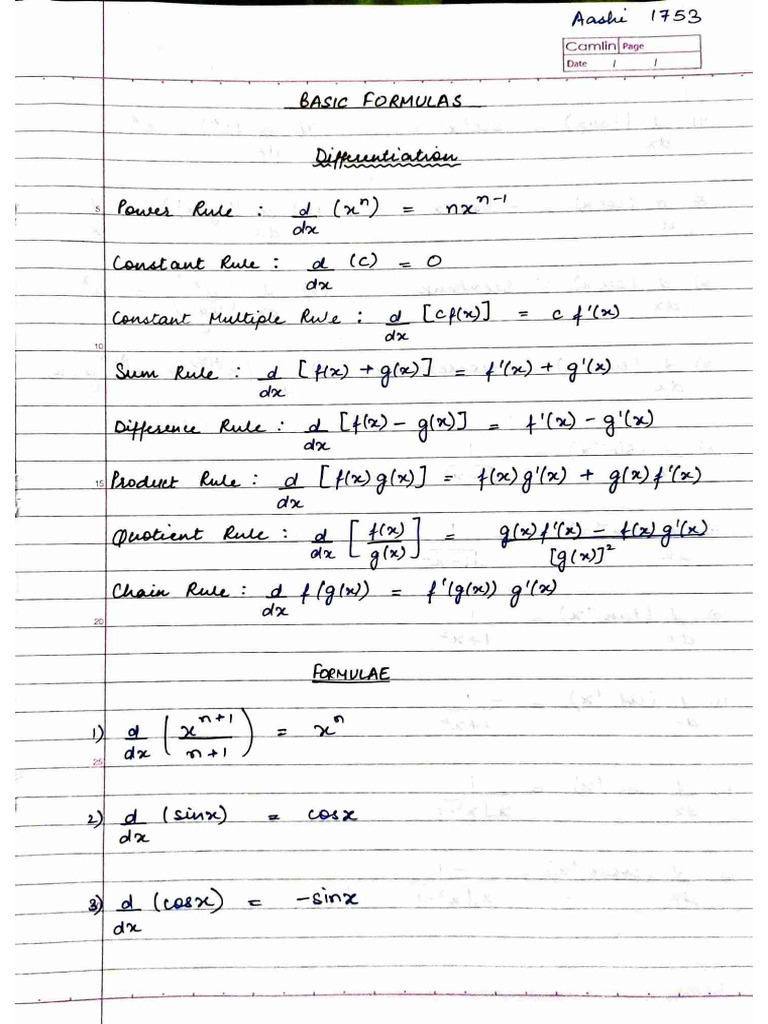 Aashi 1753
Camlin Page
Date / /
BASIC FORMULAS
Differentiation
5 Power Rule : d/dx (xⁿ) = nxⁿ⁻¹
Constant Rule : d/dx (c) = 0
Constant Multiple Rule : d/dx [cf(x)] = c f'(x)
10
Sum Rule : d/dx [f(x) + g(x)] = f'(x) + g'(x)
Difference Rule : d/dx [f(x) - g(x)] = f'(x) - g'(x)
15 Product Rule : d/dx [f(x) g(x)] = f(x) g'(x) + g(x) f'(x)
Quotient Rule : d/dx [f(x)/g(x)] = g(x) f'(x) - f(x) g'(x) / [g(x)]²
Chain Rule : d/dx f(g(x)) = f'(g(x)) g'(x)
20
FORMULAE
1) d/dx (xⁿ⁺¹/n+1) = xⁿ
25
2) d/dx (sinx) = cosx
3) d/dx (cosx) = -sinx